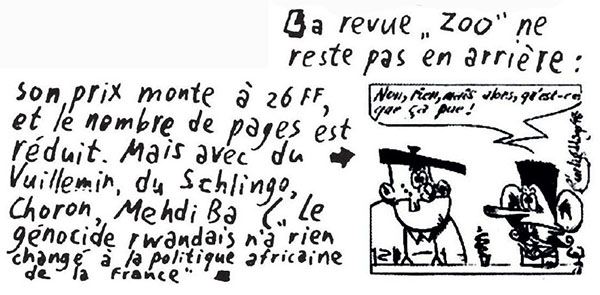 La revue „ZOO" ne
reste pas en arrière :
son prix monte à 26 FF,
et le nombre de pages est
réduit. Mais avec du
Vuillemin, du Schlingo,
Choron, Mehdi Ba („Le
génocide rwandais n'a rien
changé à la politique africaine
de la France"
Non, rien, mais alors, qu'est-ce
que ça pue !